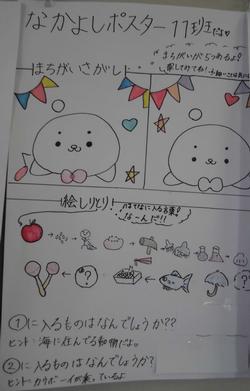 なかよしポスター 11班だよ
まちがいがさがし
まちがいが5つあるよ?
探してみてね!
絵しりとり
はてなに入る言葉?
なーんだ!!
?
?
①に入るものはなんでしょうか??
ヒント:海に住んでる動物だよ。
②に入るものはなんでしょうか?
ヒント:カウボーイが乗っているよ